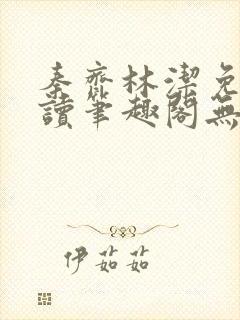 秦齊林潔免
讀筆趣閣無
伊茹茹